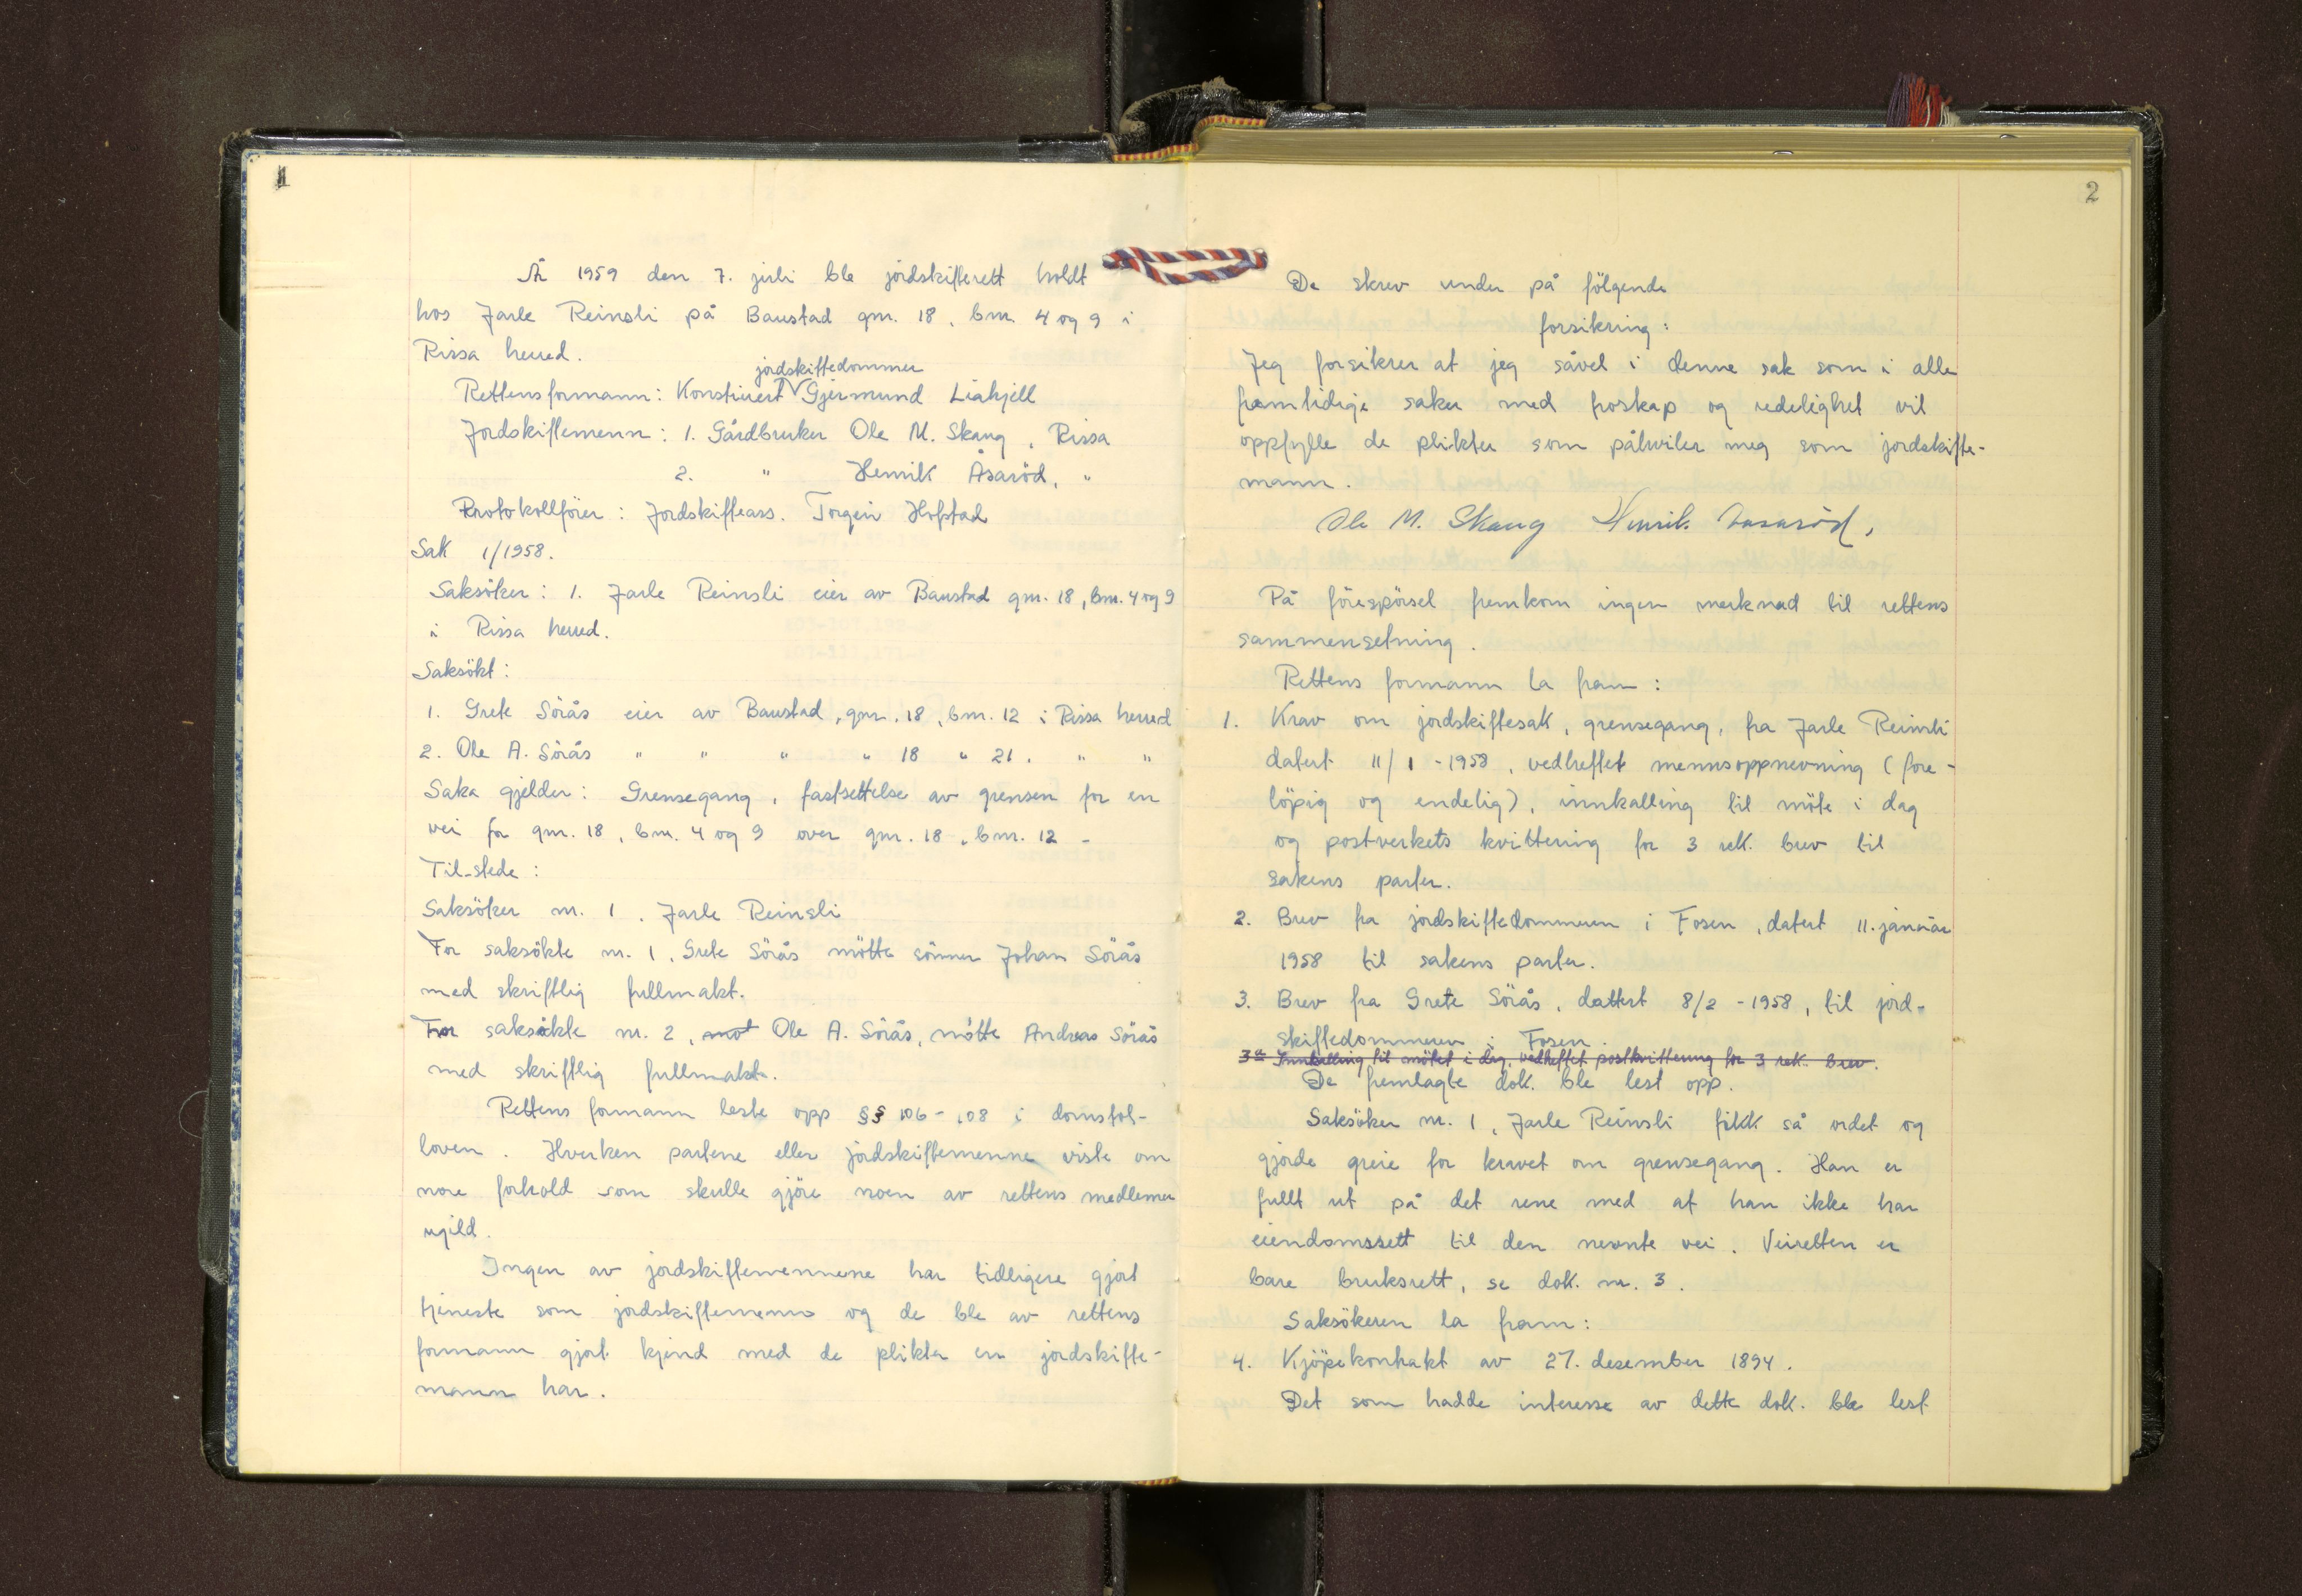 1
År 1959 den 7. juli ble jordskifterett holdt
hos Jarle Reinsli på Baustad gnr. 18, bnr. 4 og 9 i
Rissa herred.
jordskiftedommer
Rettensformann: Konstituert Gjermund Liahjell
Jordskiftemenn: 1. Gårdbruker Ole M. Skaug, Rissa
2. " Henrik Åsaröd, "
Protokollförer: Jordskifteass. Torgeir Hofstad
Sak 1/1958.
Saksöker: 1. Jarle Reinsli eier av Baustad gnr. 18, bnr. 4 og 9
i Rissa herred.
Saksökt:
1. Grete Sörås eier av Baustad, gnr. 18, bnr. 12 i Rissa herred
2. Ole A. Sörås " " " " 18 " 21. " "
Saka gjelder: Grensegang, fastsettelse av grensen for en
vei for gnr. 18, bnr. 4 og 9 over gnr. 18, bnr. 12 -
Til-stede:
Saksöker nr. 1. Jarle Reinsli
For saksökte nr. 1, Grete Sörås mötte sönnen Johan Sörås
med skriftlig fullmakt.
For saksökte nr. 2, mot Ole A. Sörås, mötte Andreas Sörås
med skriftlig fullmakt.
Rettens formann leste opp §§ 106-108 i domstol-
loven. Hverken partene eller jordskiftemenne viste om
noe forhold som skulle gjöre noen av rettens medlemer
ugild.
Ingen av jordskiftemennene har tidligere gjort
tjeneste som jordskiftemenn og de ble av rettens
formann gjort kjend med de plikter en jordskifte-
mann har.
2
De skrev under på fölgende
forsikring:
Jeg forsikrer at jeg såvel i denne sak som i alle
framtidige saker med troskap og redelighet vil
oppfylle de plikter som påhviler meg som jordskifte-
mann.
Ole M. Skaug Henrik Aasaröd,
På förespörsel fremkom ingen merknad til rettens
sammensetning.
Rettens formann la fram:
1. Krav om jordskiftesak, grensegang, fra Jarle Reinsli
datert 11/1-1958, vedheftet mennsoppnevning (fore-
löpig og endelig), innkalling til möte i dag
og postverkets kvittering for 3 rek. brev til
sakens parter.
2. Brev fra jordskiftedommeren i Fosen, datert 11. januar
1958 til sakens parter.
3. Brev fra Grete Sörås, dattert 8/2-1958, til jord-
skiftedommeren i Fosen.
3a Innkalling til mötet i dag, vedheftet postkvittering for 3 rek. brev.
De fremlagte dok. ble lest opp.
Saksöker nr. 1, Jarle Reinsli fikk så ordet og
gjorde greie for kravet om grensegang. Han er
fullt ut på det rene med at han ikke har
eiendomsrett til den nevnte vei. Veiretten er
bare bruksrett, se dok. nr. 3.
Saksökeren la fram:
4. Kjöpekontrakt av 27. desember 1894.
Det som hadde interesse av dette dok. ble lest